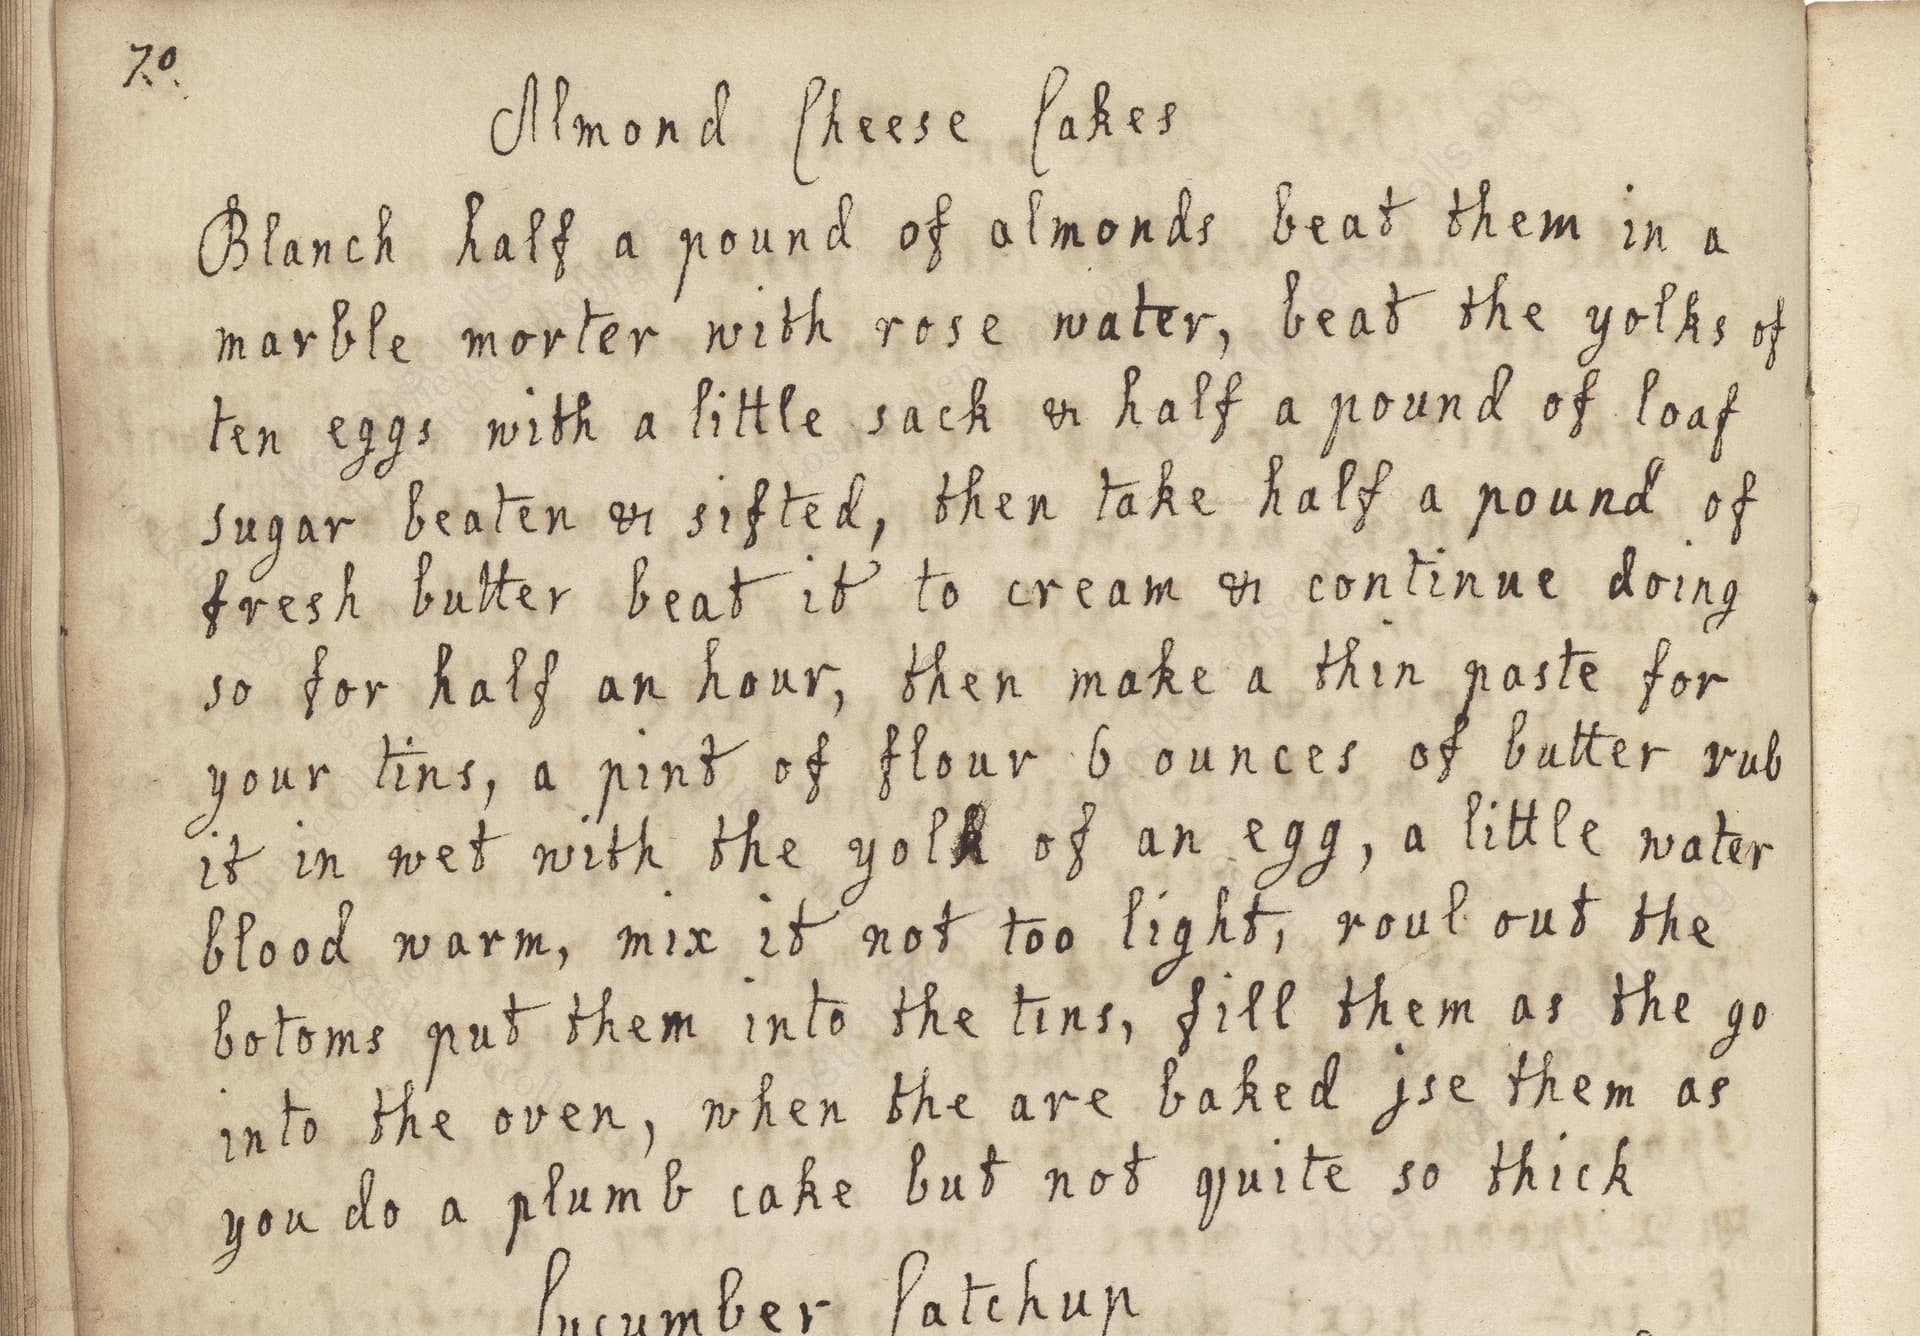 70.
Almond Cheese Cakes
Blanch half a pound of almonds beat them in a
marble morter with rose water, beat the yolks of
ten eggs with a little sack & half a pound of loaf
sugar beaten & sifted, then take half a pound of
fresh butter beat it to cream & continue doing
so for half an hour, then make a thin paste for
your tins, a pint of flour 6 ounces of butter rub
it in wet with the yolk of an egg, a little water
blood warm, mix it not too light, roul out the
botoms put them into the tins, fill them as the go
into the oven, when the are baked jse them as
you do a plumb cake but not quite so thick
Cucumber Catchup